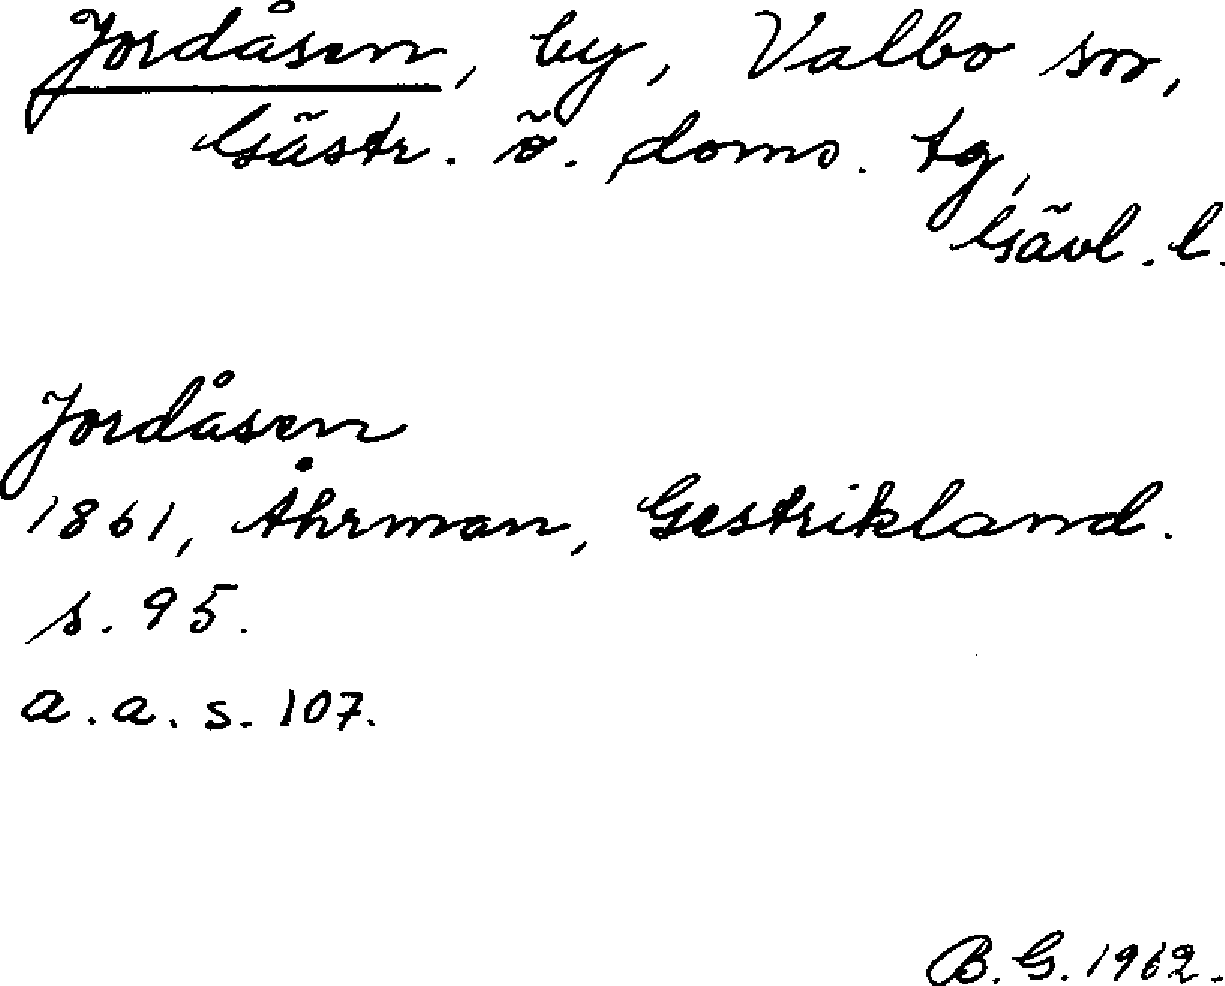 Jordåsen, by, Valbo sn,
Gästr. ö. doms. tg,
Gävl. l.
Jordåsen
1861, Åhrman, Gestrikland.
s. 95.
a. a. s. 107.
B. G. 1962.